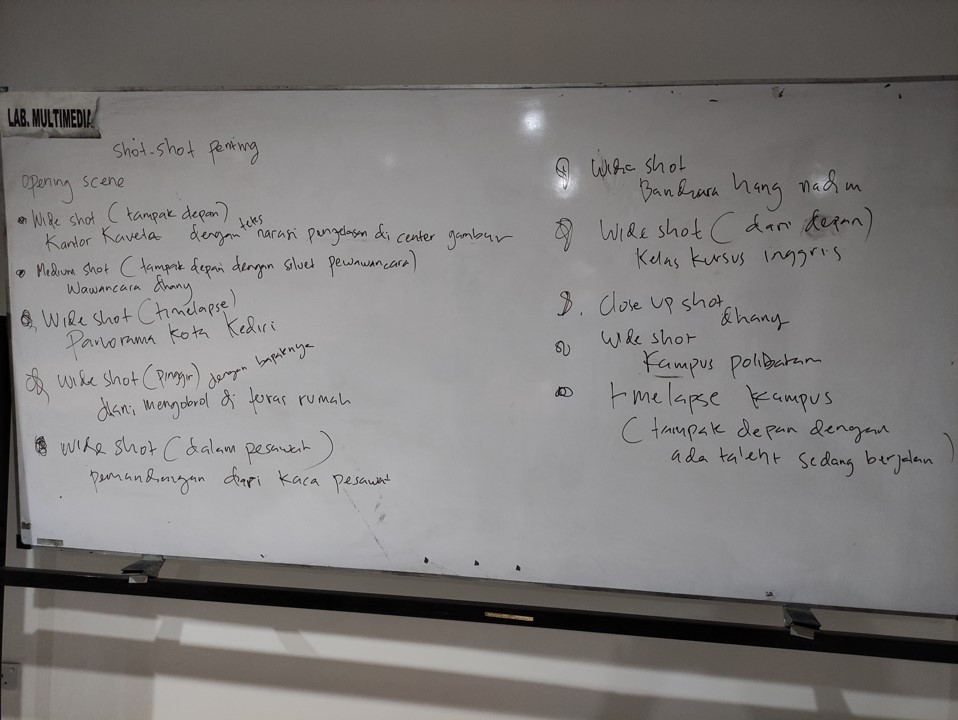 LAB. MULTIMEDIA
Shot-shot penting
Opening scene
Wide shot (tampak depan)
Kantor Kaveta dengan teks narasi penjelasan di center gambar
Medium shot (tampak depan dengan siluet pewawancara)
Wawancara dhany
Wide shot (timelapse)
Panorama Kota Kediri
Wide shot (pinggir) dengan bapaknya
dhani mengobrol di teras rumah
Wide shot (dalam pesawat)
pemandangan dari kaca pesawat
Wide shot
Bandara hang nadim
Wide shot (dari depan)
Kelas kursus inggris
Close up shot
dhany
Wide shot
Kampus polibatam
timelapse kampus
(tampak depan dengan
ada talent sedang berjalan)